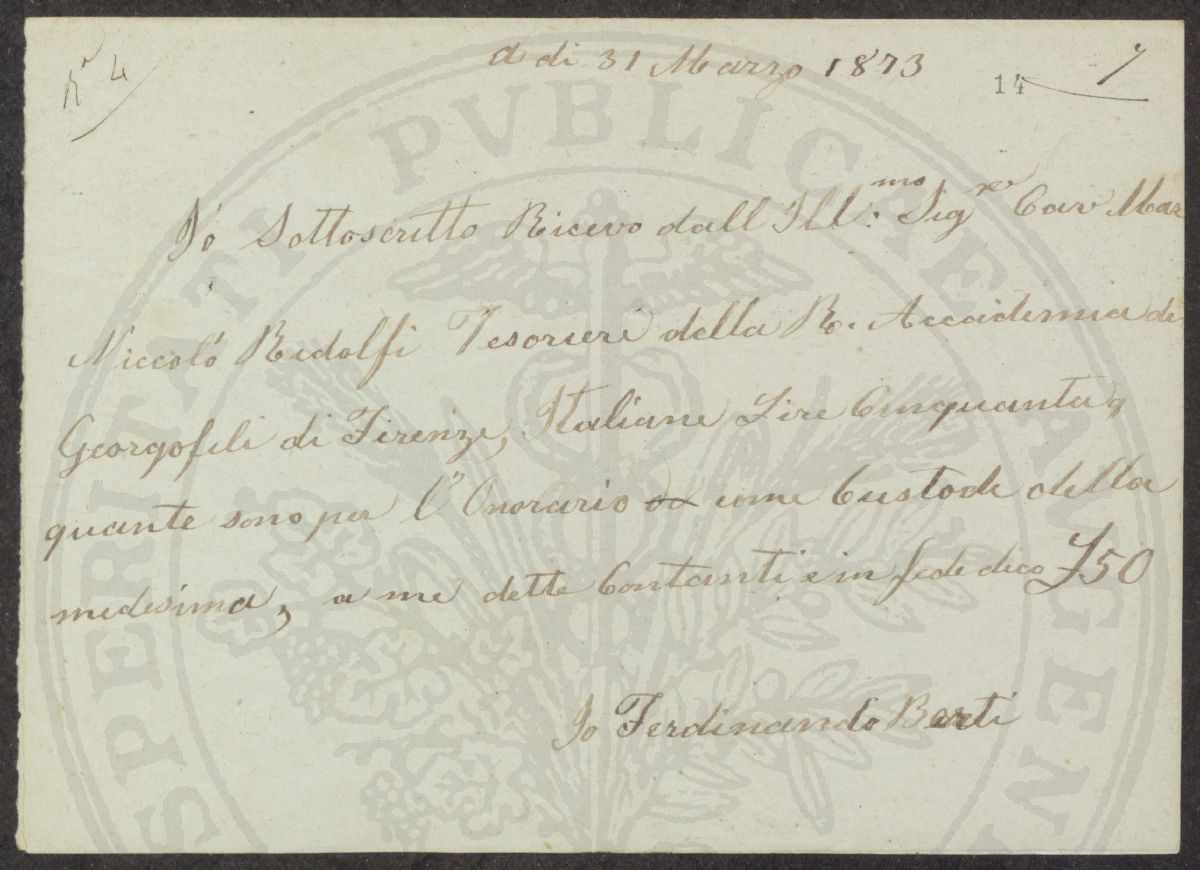 N 4
a di 31 Marzo 1873
14
7
Io Sottoscritto Ricevo dall Ill.mo Sigre Cav Mar
Niccolò Ridolfi Tesorieri della R. Accademia dei
Georgofili di Firenze, Italiane Lire Cinquanta,
quante sono per l'Onorario come Custode della
medesima, a me dette Contanti e in fede dico £50
Io Ferdinando Berti
PROSPERITATI PVBLICAE AVGENDAE